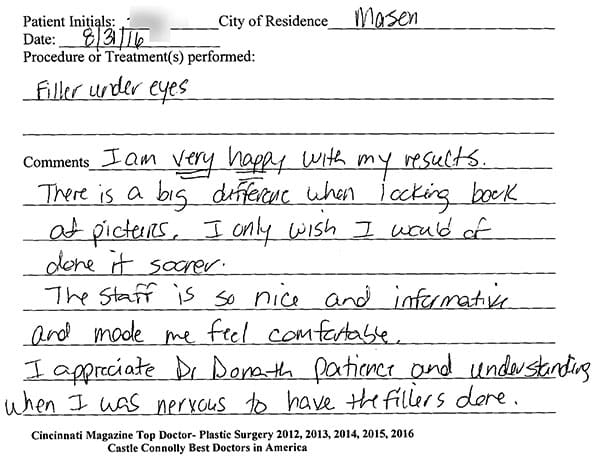 Patient Initials: City of Residence Masen
Date: 8/31/16
Procedure or Treatment(s) performed:
Filler under eyes
Comments I am very happy with my results.
There is a big difference when looking back
at pictures. I only wish I would of
done it sooner.
The staff is so nice and informative
and made me feel comfortable.
I appreciate Dr Donath patience and understanding
when I was nervous to have the fillers done.
Cincinnati Magazine Top Doctor- Plastic Surgery 2012, 2013, 2014, 2015, 2016
Castle Connolly Best Doctors in America